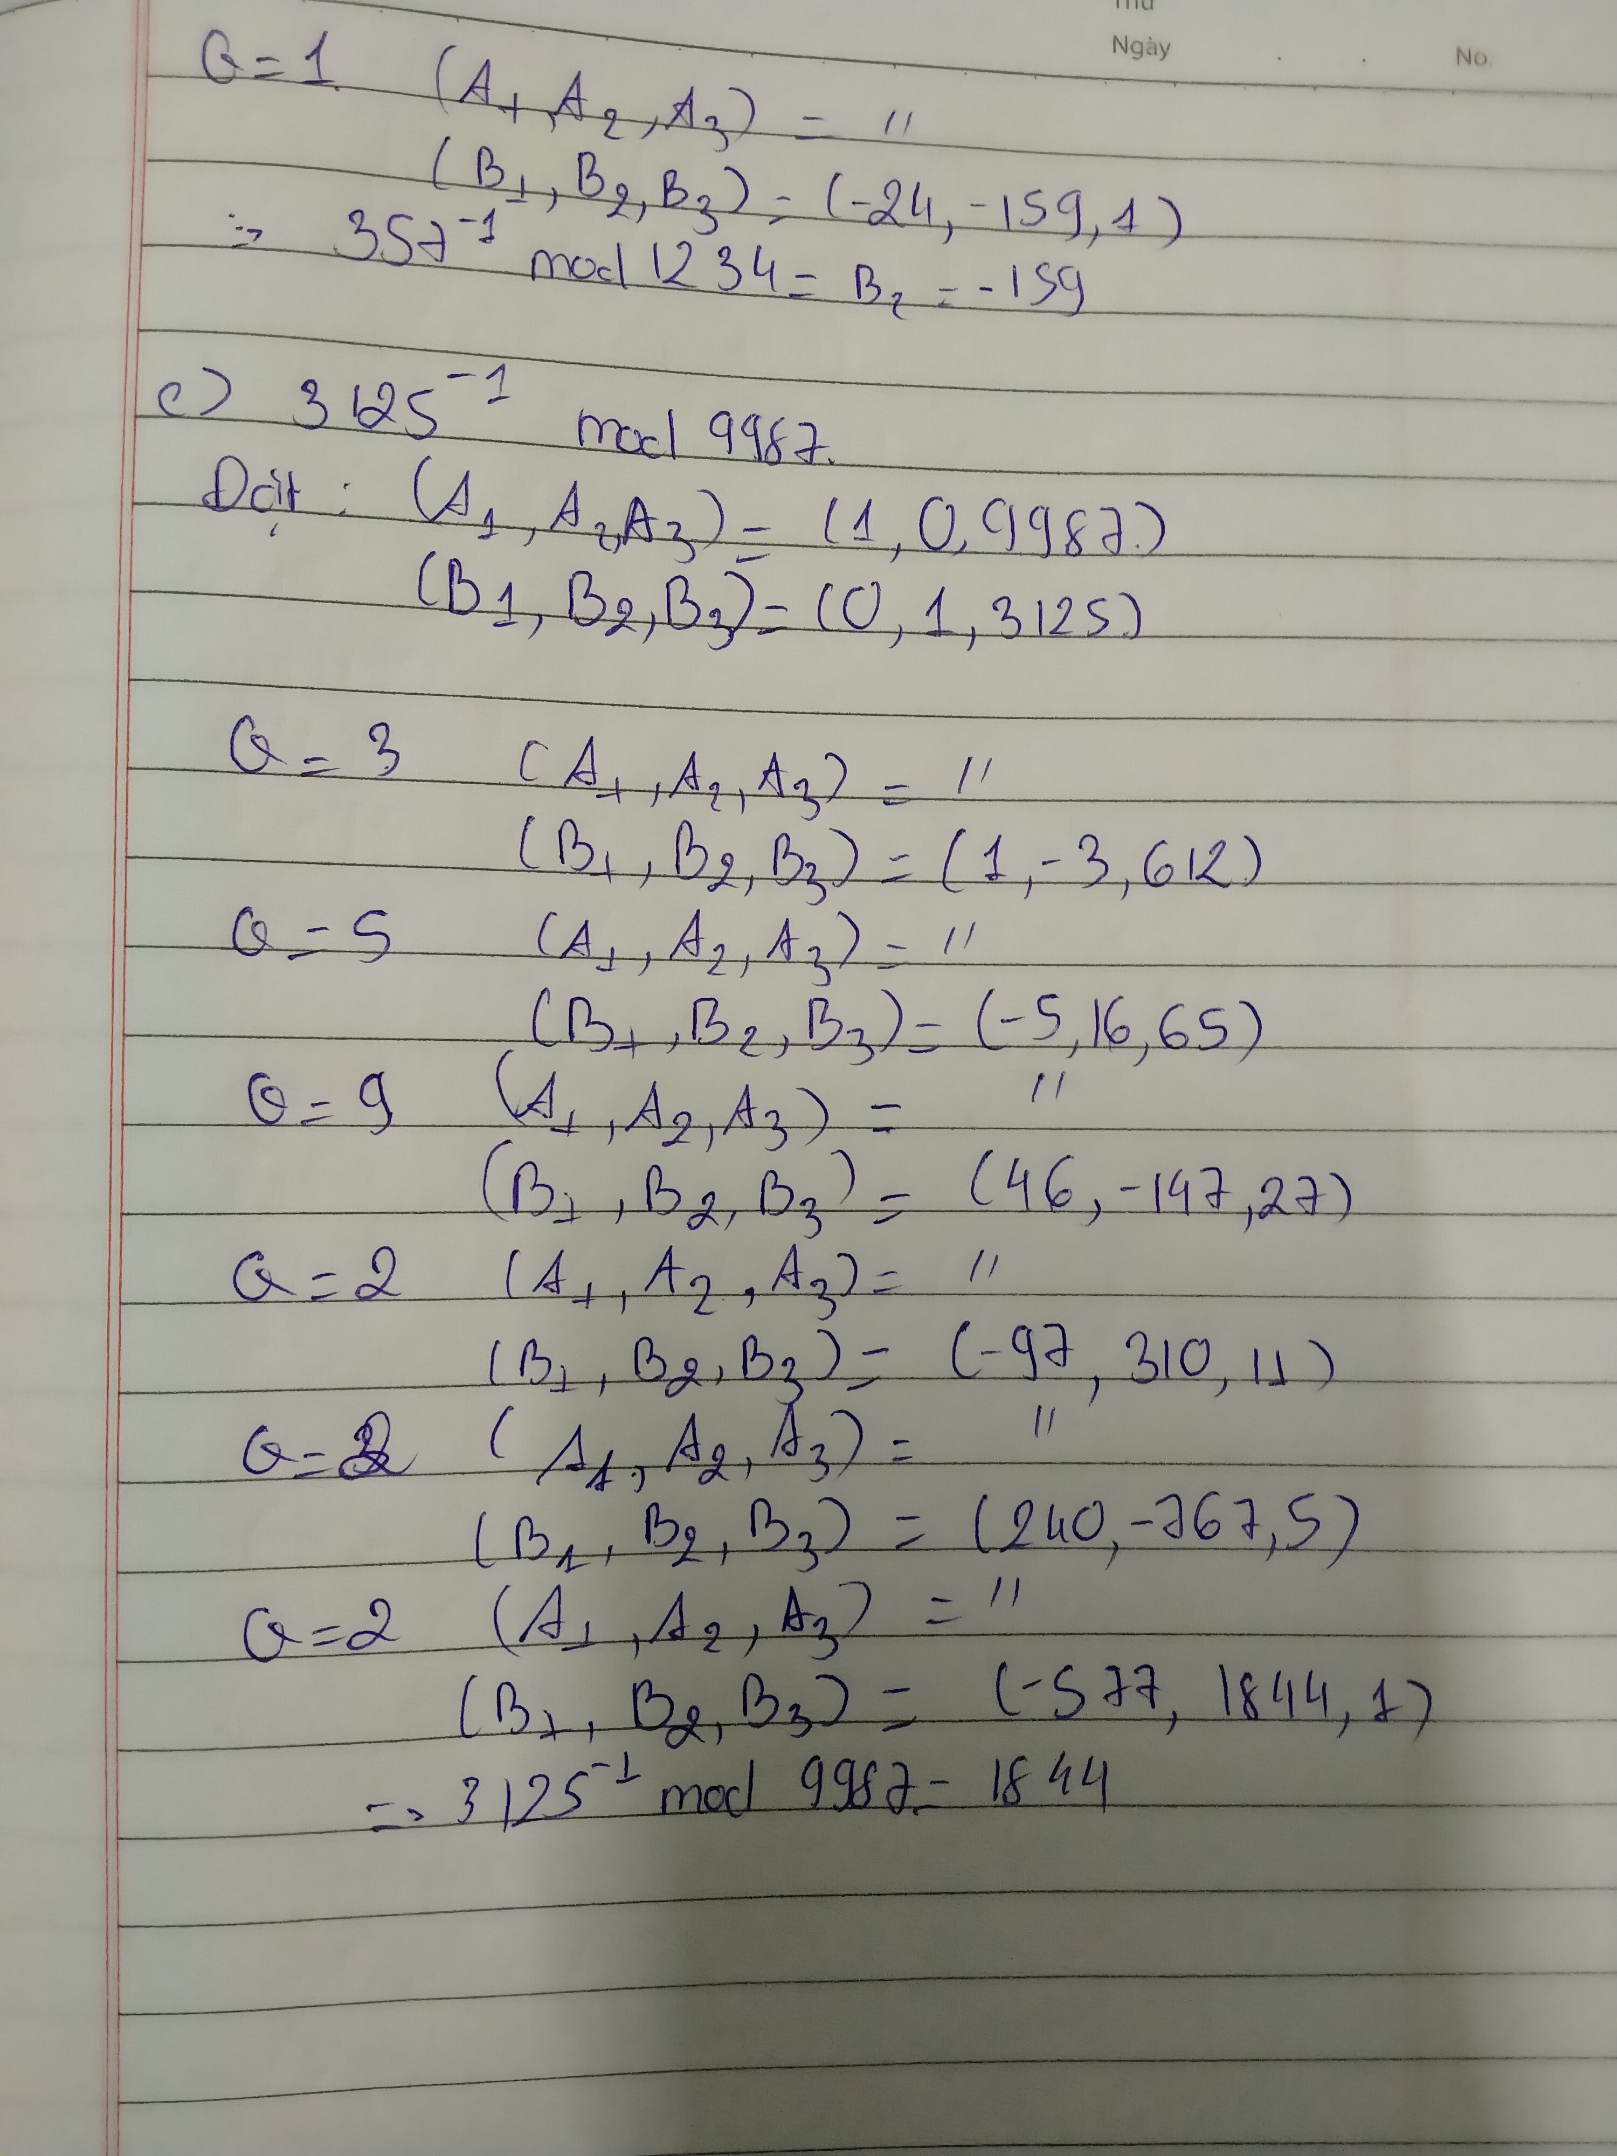 Thứ
Ngày . . No.
Q=1 (A1,A2,A3) = "
(B1, B2, B3) = (-24, -159, 1)
=> 357⁻¹ mod 1234 = B2 = -159
c) 3125⁻¹ mod 9987.
Đặt : (A1, A2, A3) = (1, 0, 9987)
(B1, B2, B3) = (0, 1, 3125)
Q = 3 (A1, A2, A3) = "
(B1, B2, B3) = (1, -3, 612)
Q = 5 (A1, A2, A3) = "
(B1, B2, B3) = (-5, 16, 65)
Q = 9 (A1, A2, A3) = "
(B1, B2, B3) = (46, -147, 27)
Q = 2 (A1, A2, A3) = "
(B1, B2, B3) = (-97, 310, 11)
Q = 2 (A1, A2, A3) = "
(B1, B2, B3) = (240, -767, 5)
Q = 2 (A1, A2, A3) = "
(B1, B2, B3) = (-577, 1844, 1)
=> 3125⁻¹ mod 9987 = 1844